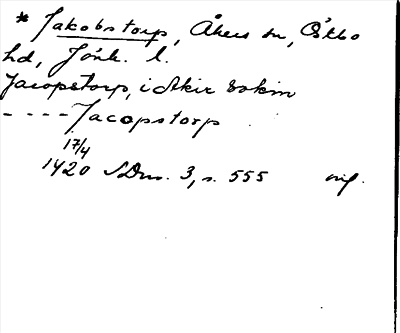 * Jakobstorp, Åkers sn, Östbo
hd, Jönk. l.
Jacopstorp, i Akir sokin
---- Jacopstorp
17/4
1420 SDns. 3, s. 555 orig.